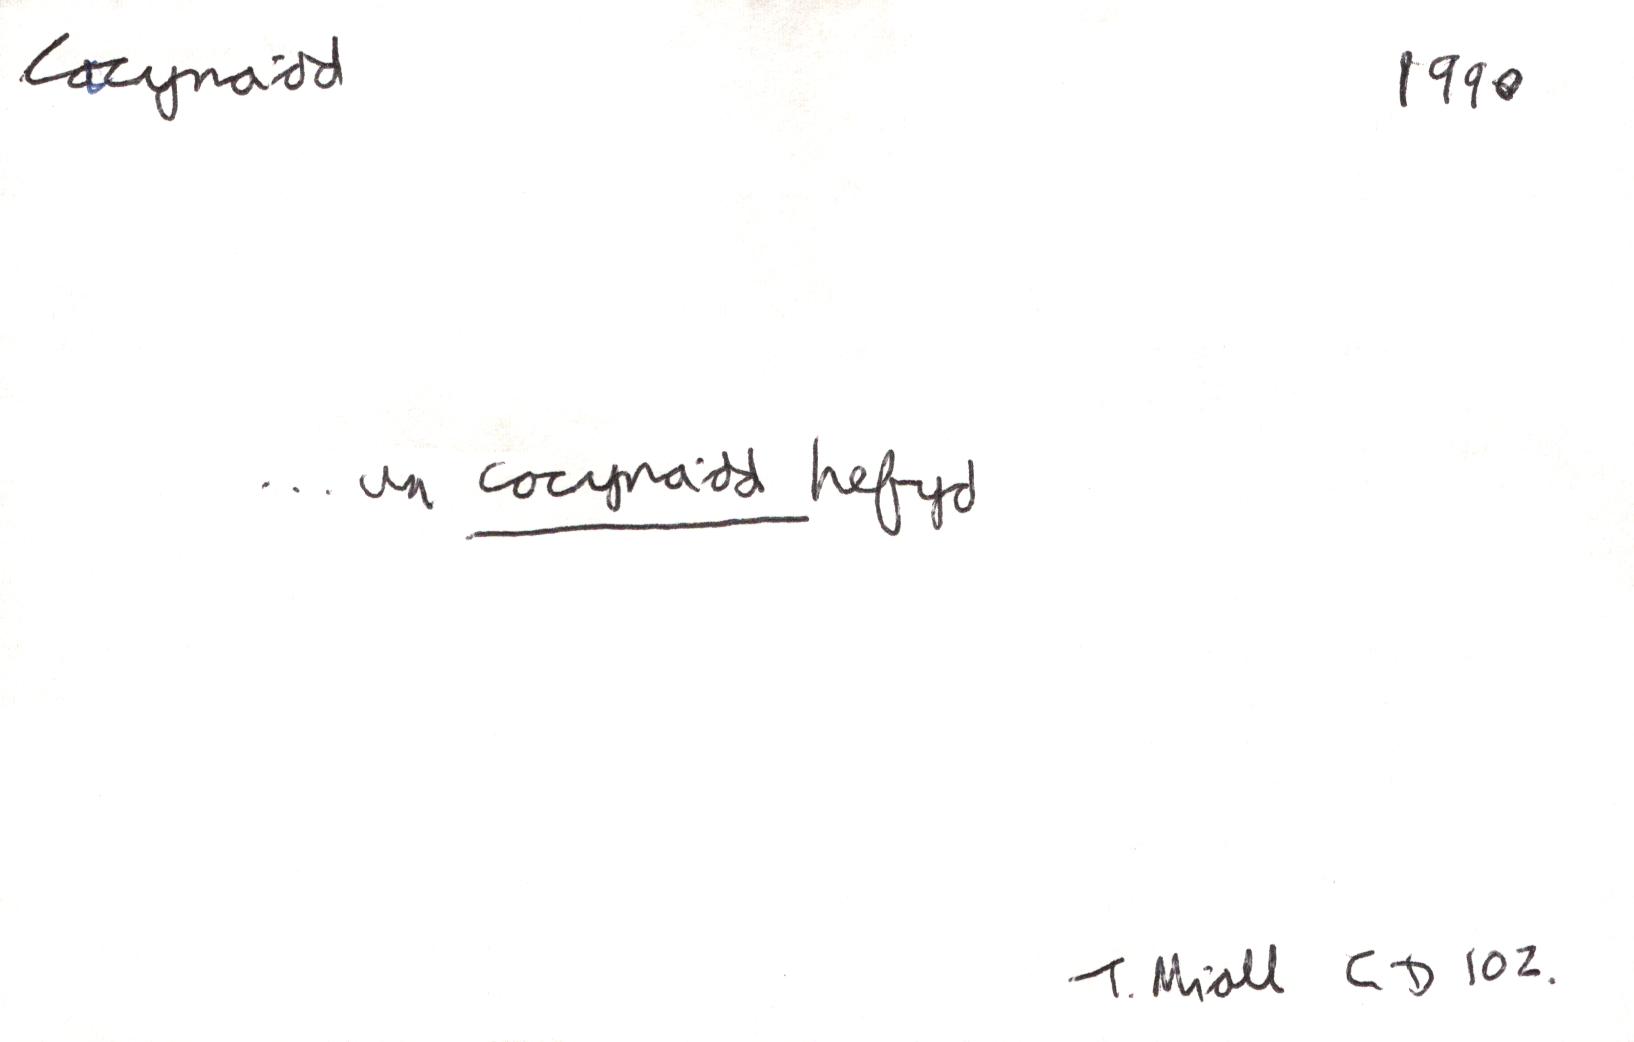 Cocynaidd 1990
... un cocynaidd hefyd
T. Miall CD 102.